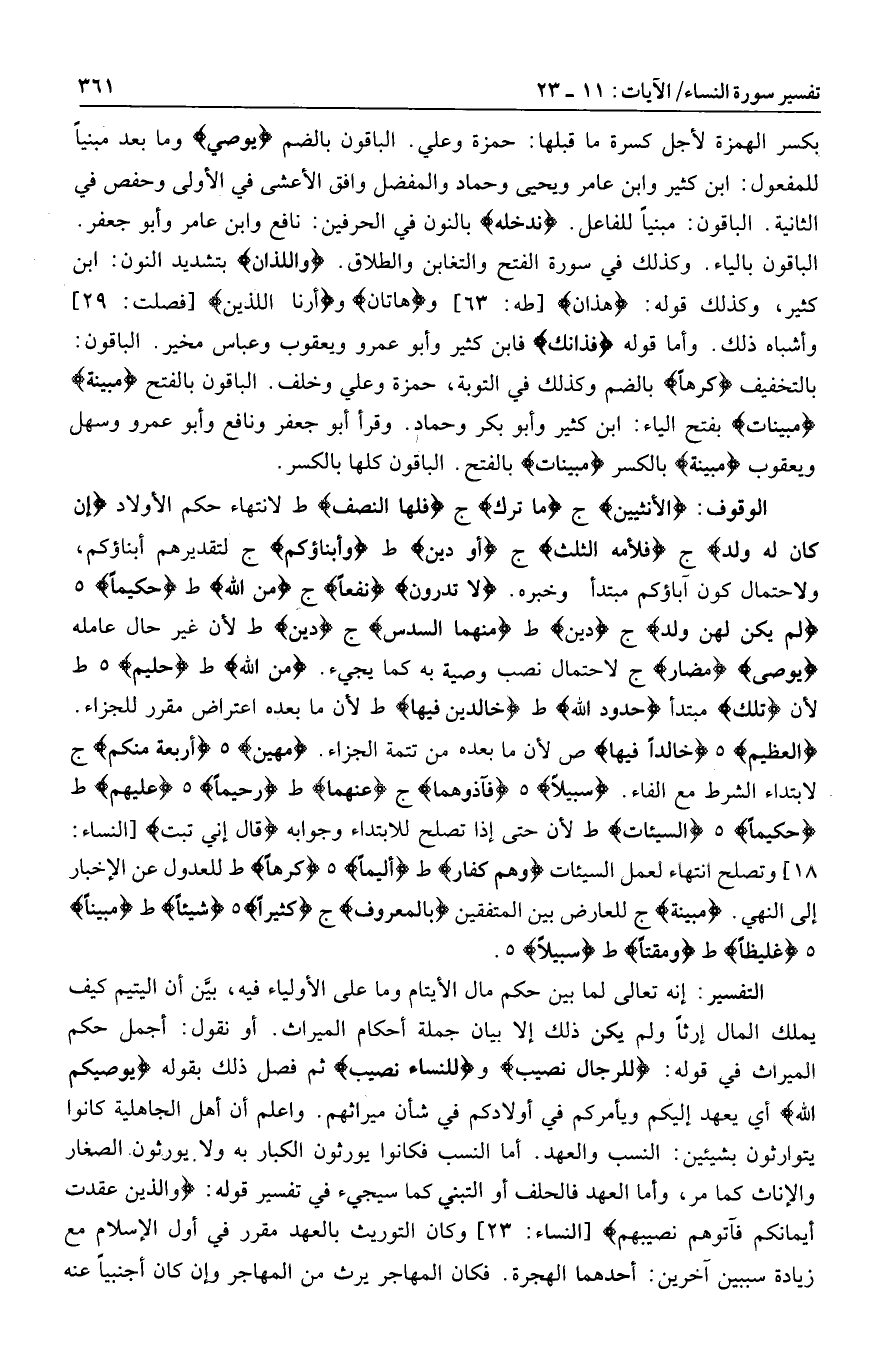 تفسير سورة النساء/ الآيات: ١١ - ٢٣ ٣٦١
بكسر الهمزة لأجل كسرة ما قبلها: حمزة وعلي. الباقون بالضم ﴿يوصي﴾ وما بعد مبنياً
للمفعول: ابن كثير وابن عامر ويحيى وحماد والمفضل وافق الأعشى في الأولى وحفص في
الثانية. الباقون: مبنياً للفاعل. ﴿ندخله﴾ بالنون في الحرفين: نافع وابن عامر وأبو جعفر.
الباقون بالياء. وكذلك في سورة الفتح والتغابن والطلاق. ﴿واللذان﴾ بتشديد النون: ابن
كثير، وكذلك قوله: ﴿هذان﴾ [طه: ٦٣] و﴿هاتان﴾ و﴿أرنا اللذين﴾ [فصلت: ٢٩]
وأشباه ذلك. وأما قوله ﴿فذانك﴾ فابن كثير وأبو عمرو ويعقوب وعباس مخير. الباقون:
بالتخفيف ﴿كرهاً﴾ بالضم وكذلك في التوبة، حمزة وعلي وخلف. الباقون بالفتح ﴿مبينة﴾
﴿مبينات﴾ بفتح الياء: ابن كثير وأبو بكر وحماد. وقرأ أبو جعفر ونافع وأبو عمرو وسهل
ويعقوب ﴿مبينة﴾ بالكسر ﴿مبينات﴾ بالفتح. الباقون كلها بالكسر.
الوقوف: ﴿الأنثيين﴾ ج ﴿ما ترك﴾ ج ﴿فلها النصف﴾ ط لانتهاء حكم الأولاد ﴿إن
كان له ولد﴾ ج ﴿فلأمه الثلث﴾ ج ﴿أو دين﴾ ط ﴿وأبناؤكم﴾ ج لتقديرهم أبناؤكم،
ولاحتمال كون آباؤكم مبتدأ وخبره. ﴿لا تدرون﴾ ﴿نفعاً﴾ ج ﴿من الله﴾ ط ﴿حكيماً﴾ ٥
﴿لم يكن لهن ولد﴾ ج ﴿دين﴾ ط ﴿منهما السدس﴾ ج ﴿دين﴾ ط لأن غير حال عامله
﴿يوصى﴾ ﴿مضار﴾ ج لاحتمال نصب وصية به كما يجيء. ﴿من الله﴾ ط ﴿حليم﴾ ٥ ط
لأن ﴿تلك﴾ مبتدأ ﴿حدود الله﴾ ط ﴿خالدين فيها﴾ ط لأن ما بعده اعتراض مقرر للجزاء.
﴿العظيم﴾ ٥ ﴿خالداً فيها﴾ ص لأن ما بعده من تتمة الجزاء. ﴿مهين﴾ ٥ ﴿أربعة منكم﴾ ج
لابتداء الشرط مع الفاء. ﴿سبيلاً﴾ ٥ ﴿فآذوهما﴾ ج ﴿عنهما﴾ ط ﴿رحيماً﴾ ٥ ﴿عليهم﴾ ط
﴿حكيماً﴾ ٥ ﴿السيئات﴾ ط لأن حتى إذا تصلح للابتداء وجوابه ﴿قال إني تبت﴾ [النساء:
١٨] وتصلح انتهاء لعمل السيئات ﴿وهم كفار﴾ ط ﴿أليماً﴾ ٥ ﴿كرهاً﴾ ط للعدول عن الإخبار
إلى النهي. ﴿مبينة﴾ ج للعارض بين المتفقين ﴿بالمعروف﴾ ج ﴿كثيراً﴾٥ ﴿شيئاً﴾ ط ﴿مبيناً﴾
٥ ﴿غليظاً﴾ ط ﴿ومقتاً﴾ ط ﴿سبيلاً﴾ ٥.
التفسير: إنه تعالى لما بين حكم مال الأيتام وما على الأولياء فيه، بيَّن أن اليتيم كيف
يملك المال إرثاً ولم يكن ذلك إلا بيان جملة أحكام الميراث. أو نقول: أجمل حكم
الميراث في قوله: ﴿للرجال نصيب﴾ و﴿للنساء نصيب﴾ ثم فصل ذلك بقوله ﴿يوصيكم
الله﴾ أي يعهد إليكم ويأمركم في أولادكم في شأن ميراثهم. واعلم أن أهل الجاهلية كانوا
يتوارثون بشيئين: النسب والعهد. أما النسب فكانوا يورثون الكبار به ولا يورثون الصغار
والإناث كما مر، وأما العهد فالحلف أو التبني كما سيجيء في تفسير قوله: ﴿والذين عقدت
أيمانكم فآتوهم نصيبهم﴾ [النساء: ٢٣] وكان التوريث بالعهد مقرر في أول الإسلام مع
زيادة سببين آخرين: أحدهما الهجرة. فكان المهاجر يرث من المهاجر وإن كان أجنبياً عنه